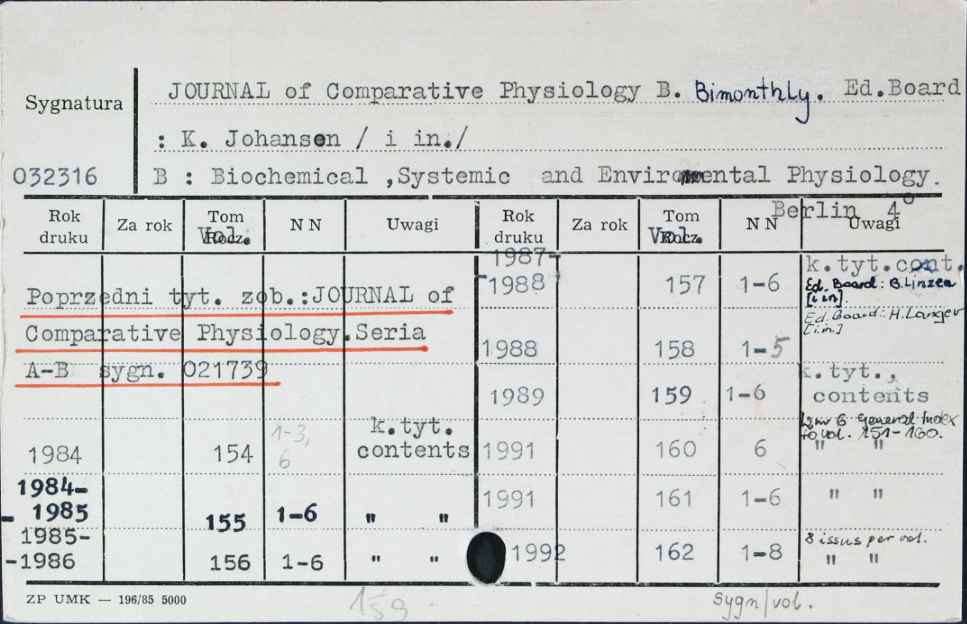 JOURNAL of Comparative Physiology B. Bimonthly. Ed.Board
Sygnatura
: K. Johansen / i in./
032316
B : Biochemical ,Systemic and Enviromental Physiology.
Berlin 4°
Rok druku Za rok Tom Vol. NN Uwagi Rok druku Za rok Tom Vol. NN Uwagi
Poprzedni tyt. zob.:JOURNAL of
Comparative Physiology.Seria
A-B sygn. 021739
1984 154 1-3, 6 k.tyt. contents
1984-
- 1985 155 1-6 " "
1985-
-1986 156 1-6 " "
1987-
-1988 157 1-6 k.tyt.cont.
Ed. Board: B.Linzen
[i in].
Ed.Board: H.Langer
[i in]
1988 158 1-5
1989 159 1-6 k.tyt., contents
General Index
to vol. 151-160.
1991 160 6 " "
1991 161 1-6 " "
8 issus per vol.
1992 162 1-8 " "
ZP UMK — 196/85 5000
159
sygn/vol.